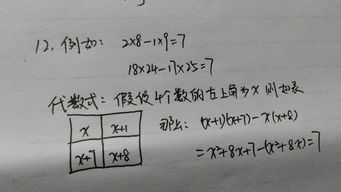 12. 例如: 2×8-1×9=7
18×24-17×25=7
代数式: 假设4个数的左上角为x 则如表
x x+1
x+7 x+8
那么: (x+1)(x+7)-x(x+8)
=x²+8x+7-(x²+8x)=7